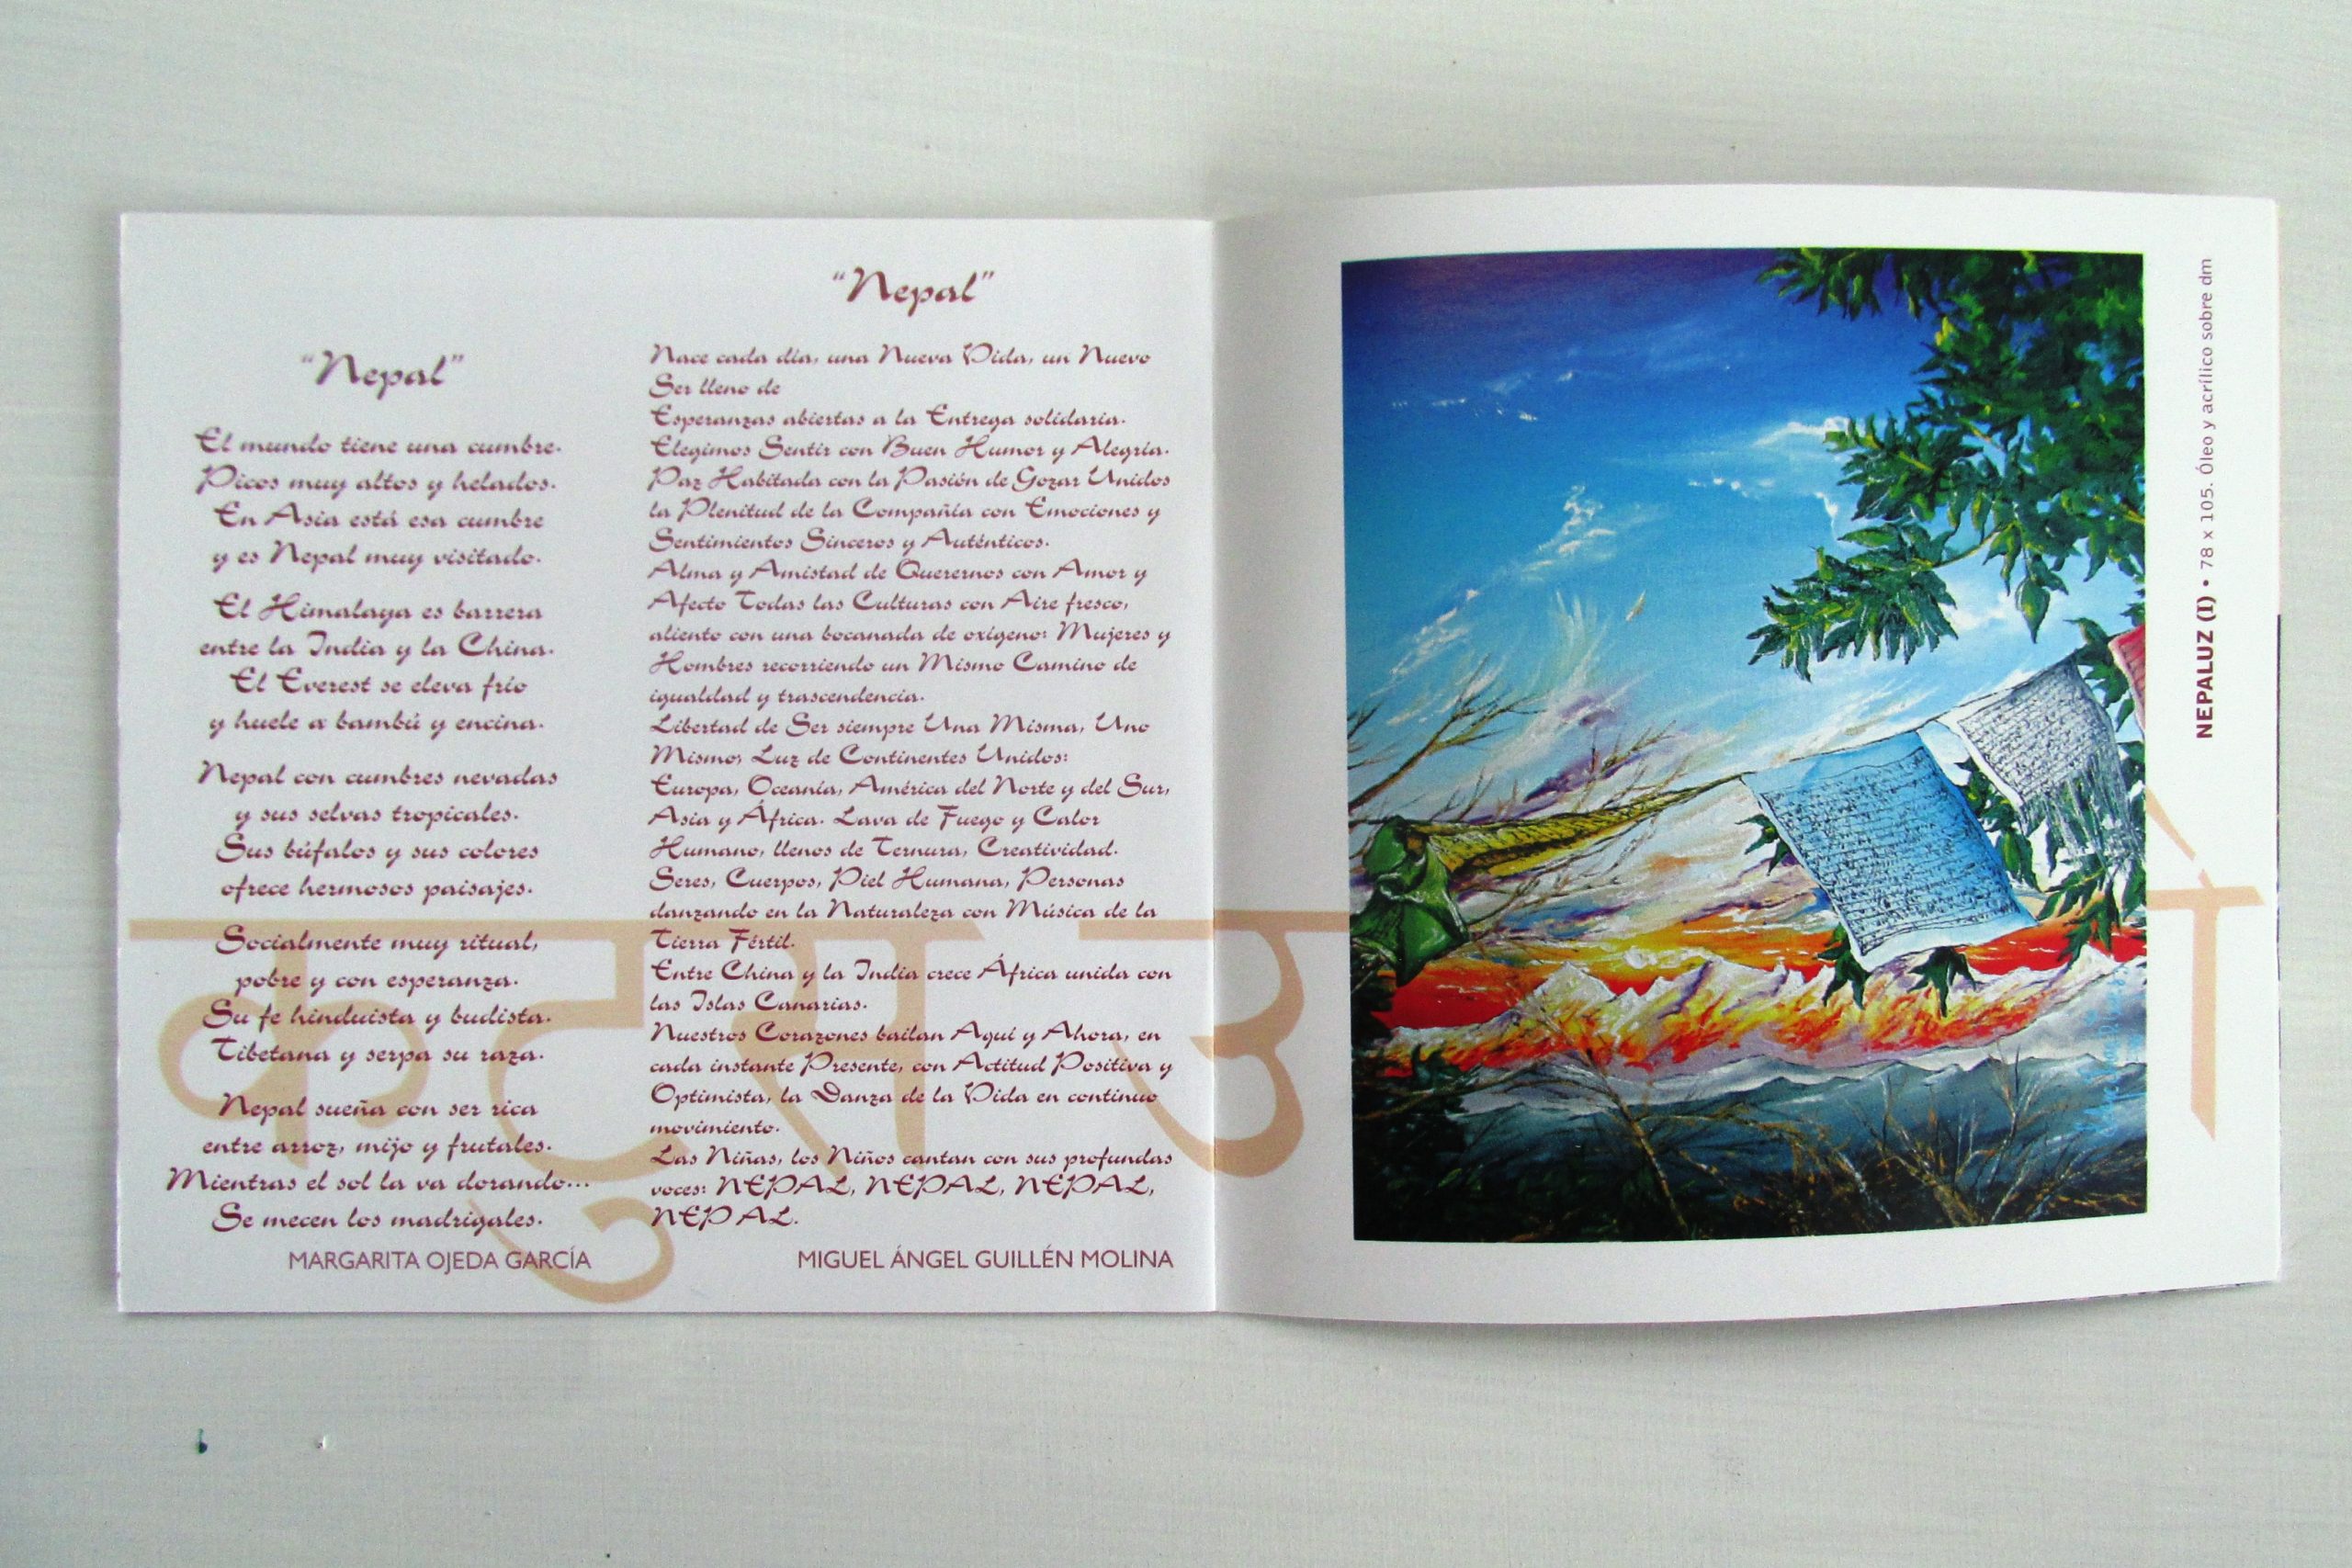 “Nepal”
El mundo tiene una cumbre.
Picos muy altos y helados.
En Asia está esa cumbre
y es Nepal muy visitado.
El Himalaya es barrera
entre la India y la China.
El Everest se eleva frío
y huele a bambú y encina.
Nepal con cumbres nevadas
y sus selvas tropicales.
Sus búfalos y sus colores
ofrece hermosos paisajes.
Socialmente muy ritual,
pobre y con esperanza.
Su fe hinduista y budista.
Tibetana y serpa su raza.
Nepal sueña con ser rica
entre arroz, mijo y frutales.
Mientras el sol la va dorando...
Se mecen los madrigales.
MARGARITA OJEDA GARCÍA
“Nepal”
Nace cada día, una Nueva Vida, un Nuevo
Ser lleno de
Esperanzas abiertas a la Entrega solidaria.
Elegimos Sentir con Buen Humor y Alegría.
Paz Habitada con la Pasión de Gozar Unidos
la Plenitud de la Compañía con Emociones y
Sentimientos Sinceros y Auténticos.
Alma y Amistad de Querernos con Amor y
Afecto Todas las Culturas con Aire fresco,
aliento con una bocanada de oxígeno: Mujeres y
Hombres recorriendo un Mismo Camino de
igualdad y trascendencia.
Libertad de Ser siempre Una Misma, Uno
Mismo; Luz de Continentes Unidos:
Europa, Oceanía, América del Norte y del Sur,
Asia y África. Lava de Fuego y Calor
Humano, llenos de Ternura, Creatividad.
Seres, Cuerpos, Piel Humana, Personas
danzando en la Naturaleza con Música de la
Tierra Fértil.
Entre China y la India crece África unida con
las Islas Canarias.
Nuestros Corazones bailan Aquí y Ahora, en
cada instante Presente, con Actitud Positiva y
Optimista, la Danza de la Vida en continuo
movimiento.
Las Niñas, los Niños cantan con sus profundas
voces: NEPAL, NEPAL, NEPAL,
NEPAL.
MIGUEL ÁNGEL GUILLÉN MOLINA
NEPALUZ (I) • 78 x 105. Óleo y acrílico sobre dm